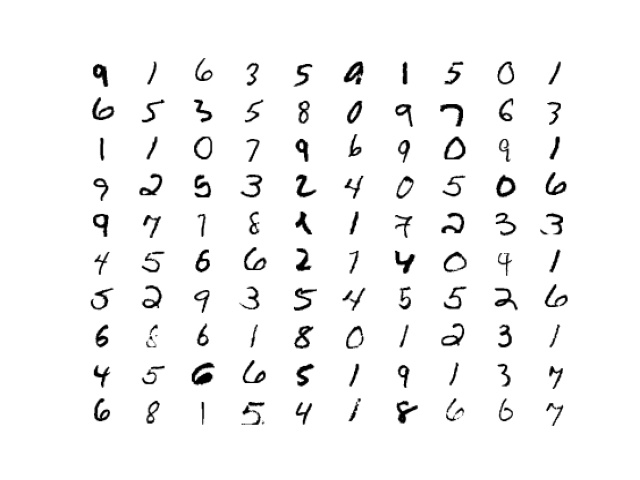 9 1 6 3 5 9 1 5 0 1
6 5 3 5 8 0 9 7 6 3
1 1 0 7 9 6 9 0 9 1
9 2 5 3 2 4 0 5 0 6
9 7 7 8 1 1 7 2 3 3
4 5 6 6 2 7 4 0 9 1
5 2 9 3 5 4 5 5 2 6
6 8 6 1 8 0 1 2 3 1
4 5 6 6 5 1 9 1 3 7
6 8 1 5 4 1 8 6 6 7